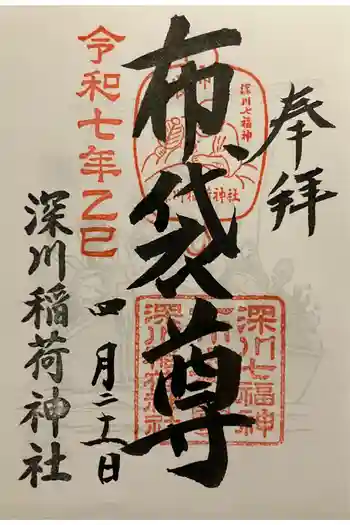 奉拝
深川七福神
布袋尊
深川稲荷神社
深川七福神
令和七年乙巳
四月二十一日
深川稲荷神社